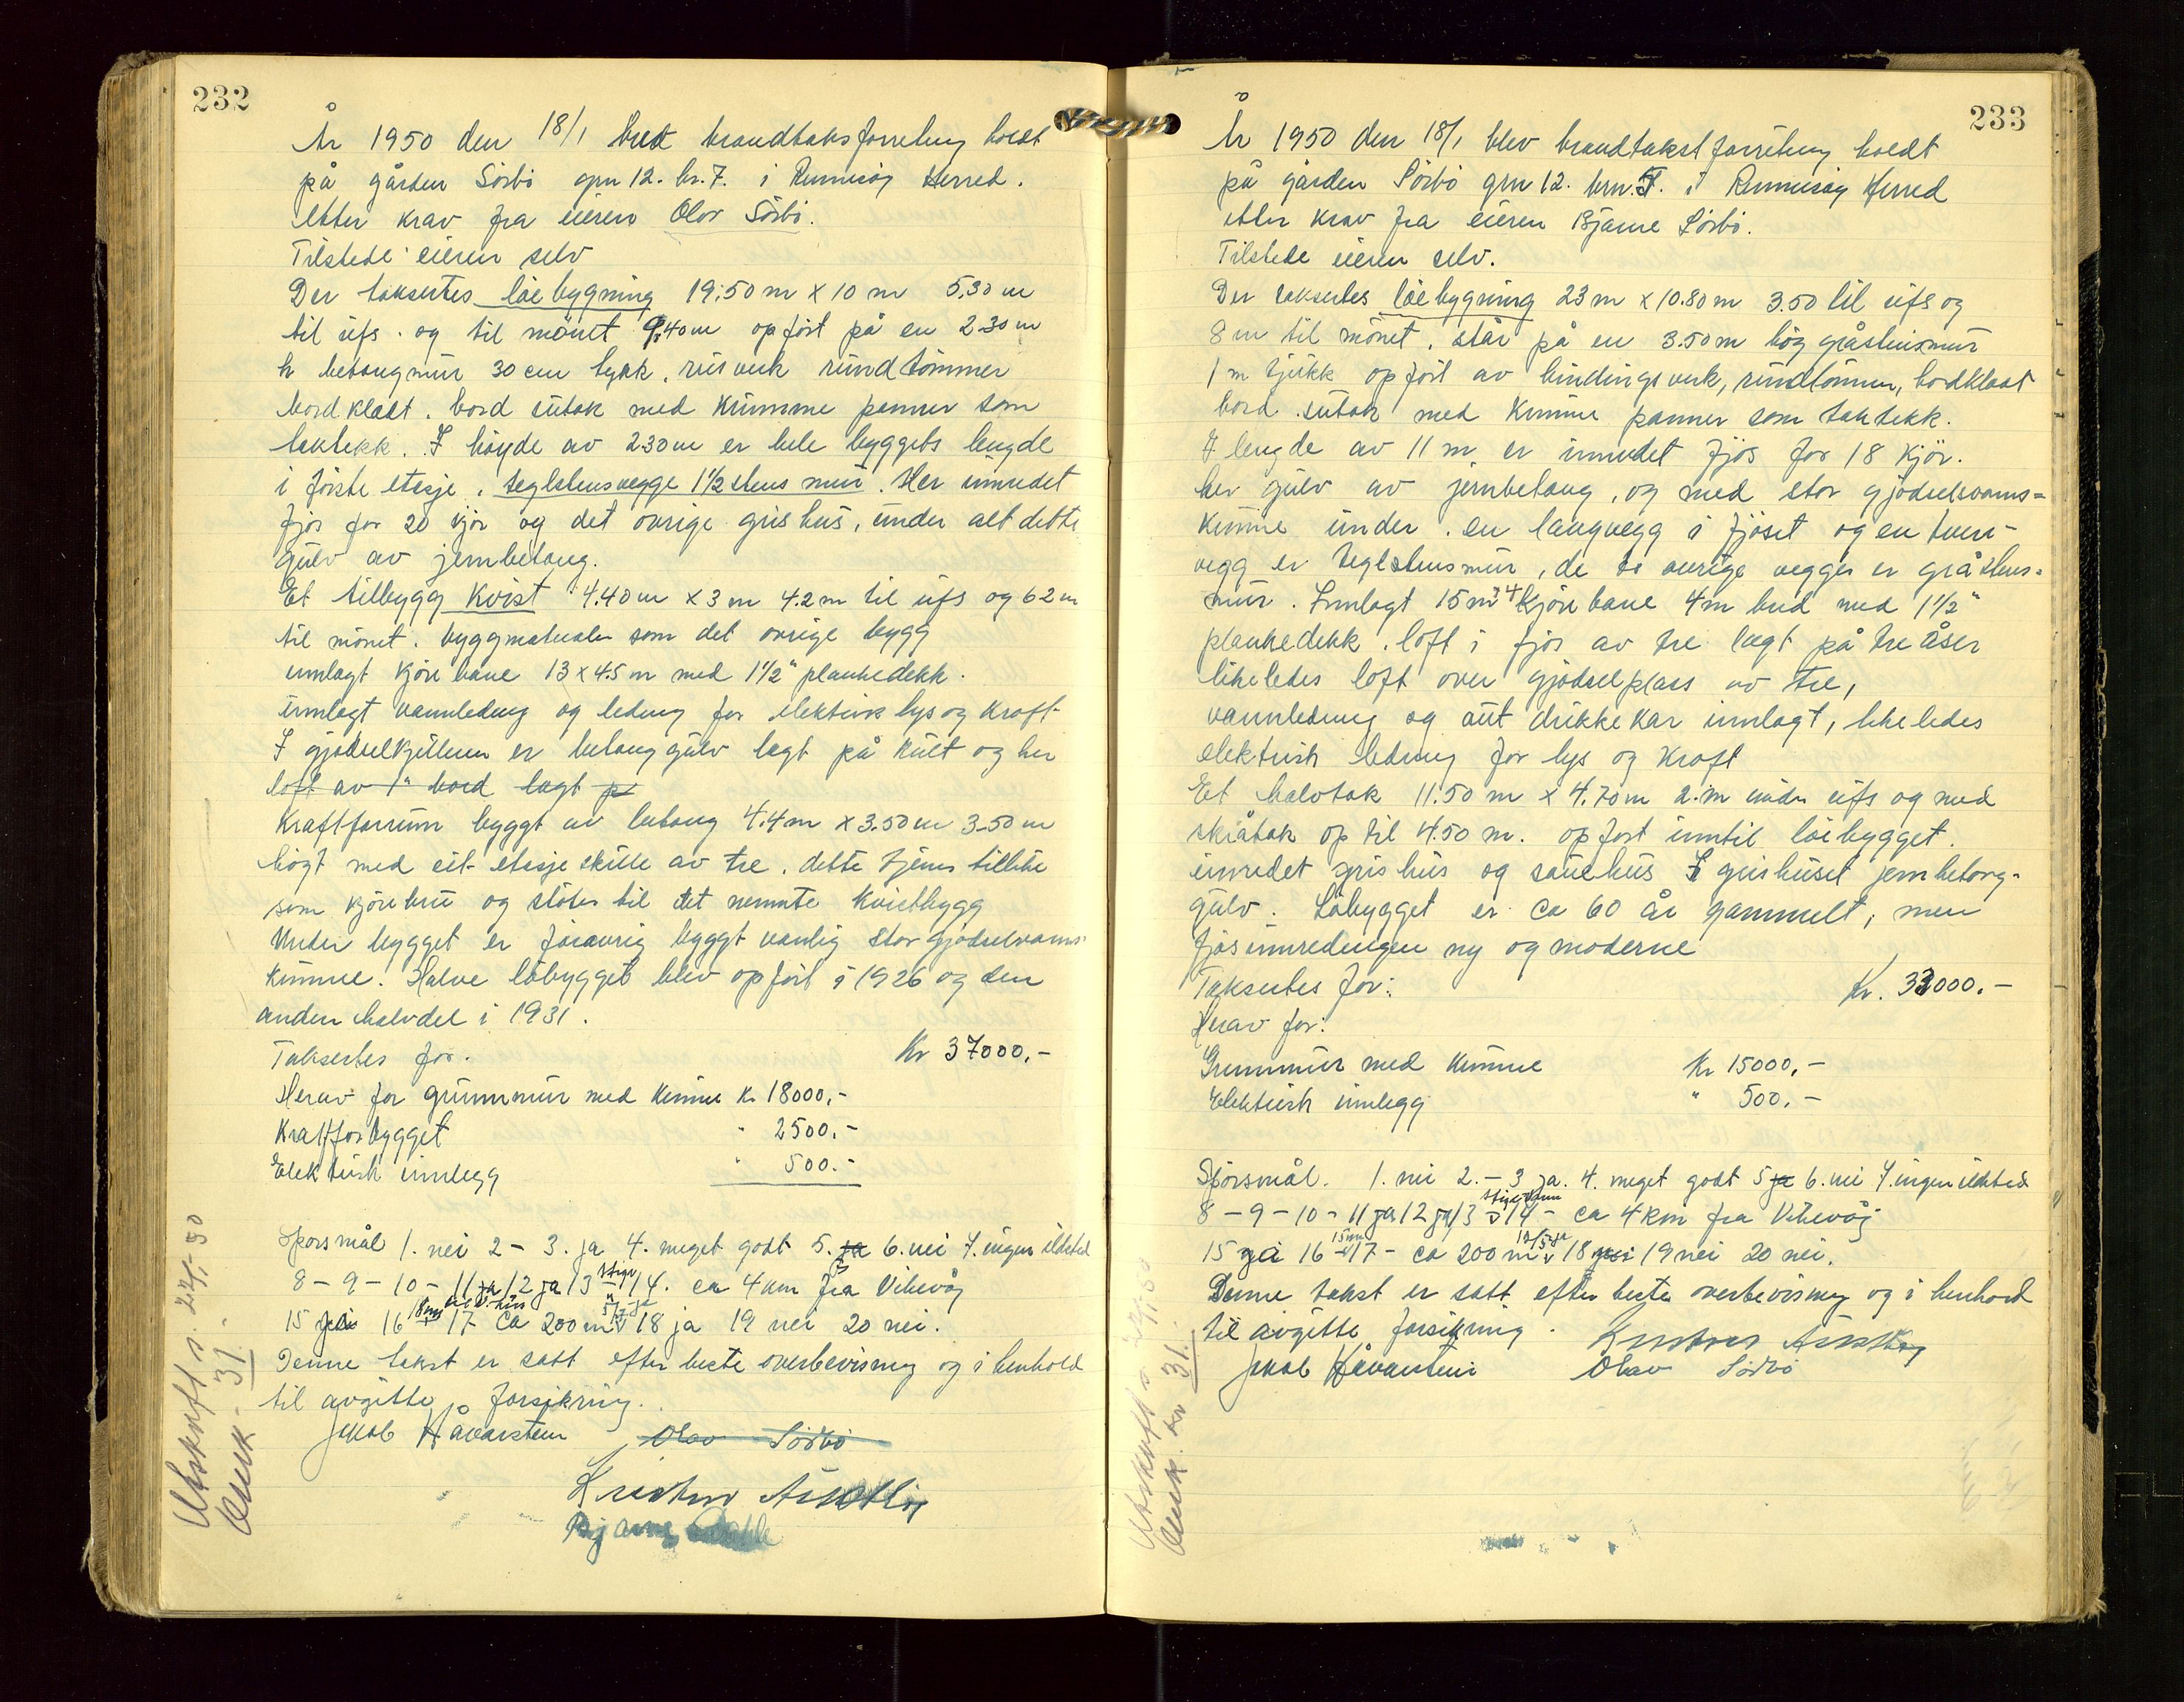 232
År 1950 den 18/1 blev brandtakstforretning holdt
på gården Sörbö grn 12. br. 7. i Rennesöy Herred.
etter krav fra eieren Olav Sörbö.
Tilstede eieren selv
Der taksertes löebygning 19.50 m x 10 m 5.30 m
til ufs. og til mönet 9.40 m opfört på en 2.30 m
h betongmur 30 cm tykk. reisverk rundtömmer
bordkledt. bord sutak med krumme panner som
taktekk. I höyde av 2.30 m er hele byggets lengde
i förste etasje, teglstensvegge 1½ stens mur. Her innredet
fjös for 20 kjör og det övrige grishus, under alt dette
gulv av jernbetong.
Et tilbygg kvist 4.40 m x 3 m 4.2 m til ufs og 6.2 m
til mönet. byggmaterialer som det övrige bygg
innlagt kjörebane 13 x 4.5 m med 1½" plankedekk.
innlagt vannledning og ledning for elektrisk lys og kraft.
I gjödselkjelleren er betonggulv lagt på kult og her
loft av 1" bord lagt p
Kraftforrum byggt av betong 4.4 m x 3.50 m 3.50 m
högt med eit etasjeskille av tre. dette tjener tillike
som kjörebru og stöter til det nemnte kvistbygg
Under bygget er forövrig byggt vanlig stor gjödselvanns-
kumme. Halve löbygget blev opfört i 1926 og den
anden halvdel i 1931.
Taksertes for. Kr 37000,-
Herav for grunnmur med kumme Kr 18000,-
Kraftforbygget " 2500,-
Elektrisk innlegg " 500.-
Spörsmål 1. nei 2 - 3. ja 4. meget godt 5. ja 6. nei 7. ingen ildsted
8 - 9 - 10 - 11 ja 12 ja 13 stige 14. ca 4 km fra Vikevåg
15 ja 16 17 - ca 200 m 18 ja 19 nei 20 nei.
Denne takst er satt efter beste overbevisning og i henhold
til avgitte forsikring.
Jakob Håvarstein Olav Sörbö
Kristen
Bjarne
Utskrift s. 24/1-50
31.
233
År 1950 den 18/1 blev brandtakstforretning holdt
på gården Sörbö grn 12. brn. i Rennesöy Herred
etter krav fra eieren Bjarne Sörbö.
Tilstede eieren selv.
Der taksertes löebygning 23 m x 10.80 m 3.50 til ufs og
8 m til mönet. står på en 3.50 m hög gråsteinsmur
1 m tjukk opfört av bindingsverk, rundtömmer, bordkledt
bord. sutak med krumme panner som taktekk.
I lengde av 11 m er innredet fjös for 18 kjör.
her gulv av jernbetong, og med stor gjödselvanns=
kumme under. en langvegg i fjöset og en tverr-
vegg er teglstensmur, de to övrige vegger er gråstens-
mur. Innlagt 15 m kjörebane 4 m bred med 1½"
plankedekk. loft i fjös av tre lagt på tre åser
likeledes loft over gjödselplass av tre,
vannledning og aut drikkekar innlagt, likeledes
elektrisk ledning for lys og kraft
Et halvtak 11.50 m x 4.70 m 2. m under ufs og med
skråtak op til 4.50 m. opfört inntil löebygget.
innredet grishus og sauehus I grishuset jernbetong-
gulv. Löbygget er ca 60 år gammelt, men
fjösinnredningen ny og moderne
Taksertes for: Kr. 33000.-
Herav for:
Grunnmur med kumme Kr 15000,-
Elektrisk innlegg " 500.-
Spörsmål. 1. nei 2. - 3 ja. 4. meget godt 5 ja 6. nei 7. ingen ildsted
8 - 9 - 10 - 11 ja 12 ja 13 14 - ca 4 km fra Vikevåg
15 ja 16 17 - ca 200 m 18 19 nei 20 nei.
Denne takst er satt efter beste overbevisning og i henhold
til avgitte forsikring. Kristen
Jakob Håvarstein Olav Sörbö
Utskrift s. 24/1-50
31.